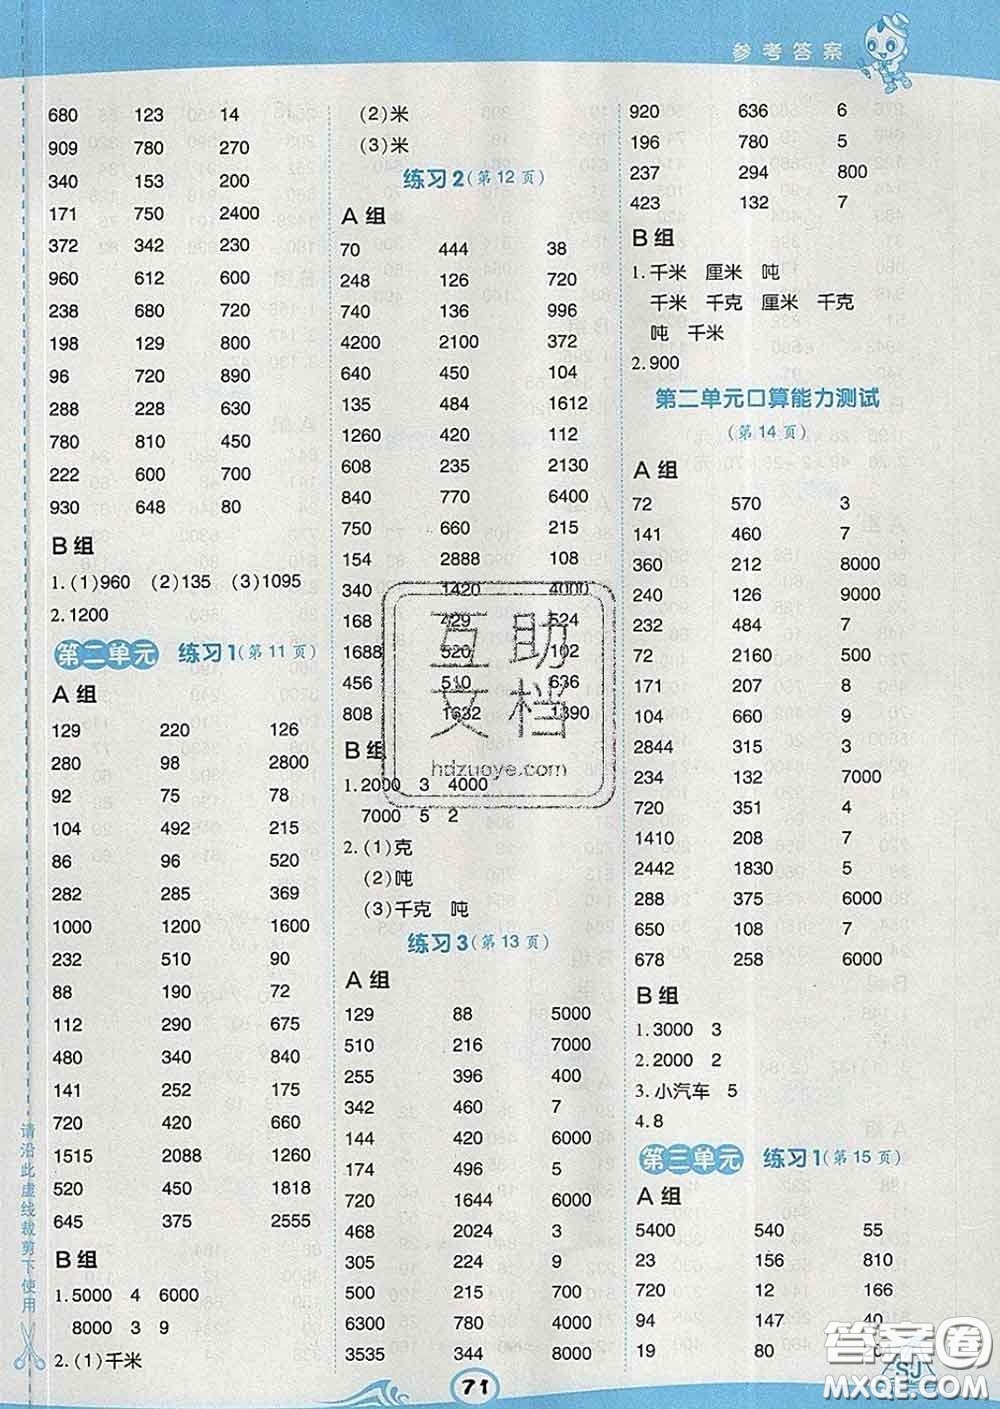 参考答案
680 123 14
909 780 270
340 153 200
171 750 2400
372 342 230
960 612 600
238 680 720
198 129 800
96 720 890
288 228 630
780 810 450
222 600 700
930 648 80
B 组
1.(1)960 (2)135 (3)1095
2.1200
第二单元 练习1(第11页)
A 组
129 220 126
280 98 2800
92 75 78
104 492 215
86 96 520
282 285 369
1000 1200 1600
232 510 90
88 190 72
112 290 675
480 340 840
141 252 175
720 420 660
1515 2088 1260
520 450 1818
645 375 2555
B 组
1.5000 4 6000
8000 3 9
2.(1)千米
(2)米
(3)米
练习2(第12页)
A 组
70 444 38
248 126 720
740 136 996
4200 2100 372
640 450 104
135 484 1612
1260 420 112
608 235 2130
840 770 6400
750 660 215
154 2888 108
340 1420 4000
168 429 524
1688 520 102
456 510 636
808 1632 1390
B 组
1.2000 3 4000
7000 5 2
2.(1)克
(2)吨
(3)千克 吨
练习3(第13页)
A 组
129 88 5000
510 216 7000
255 396 400
342 460 7
144 420 6000
174 496 5
720 1644 6000
468 2024 3
305 224 9
500 215 700
6300 780 4000
3535 344 8000
920 636 6
196 780 5
237 294 800
423 132 7
B 组
1.千米 厘米 吨
千米 千克 厘米 千克
吨 千米
2.900
第二单元口算能力测试
(第14页)
A 组
72 570 3
141 460 7
360 212 8000
240 126 9000
232 484 7
72 2160 500
171 207 8
104 660 9
2844 315 3
234 132 7000
720 351 4
1410 208 7
2442 1830 5
288 375 6000
650 108 7
678 258 6000
B 组
1.3000 3
2.2000 2
3.小汽车 5
4.8
第三单元 练习1(第15页)
A 组
5400 540 55
23 156 810
720 12 166
94 147 40
19 80
请沿此虚线裁剪下使用
71
互助文档
hdzuoye.com
答案圈
MXQE.COM
SJ